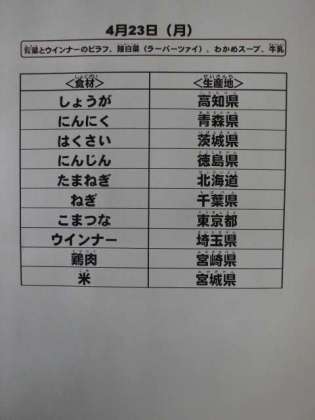 4月23日（月）
菜とウインナーのピラフ、辣白菜（ラーパーツァイ）、わかめスープ、牛乳
＜食材＞ ＜生産地＞
しょうが 高知県
にんにく 青森県
はくさい 茨城県
にんじん 徳島県
たまねぎ 北海道
ねぎ 千葉県
こまつな 東京都
ウインナー 埼玉県
鶏肉 宮崎県
米 宮城県